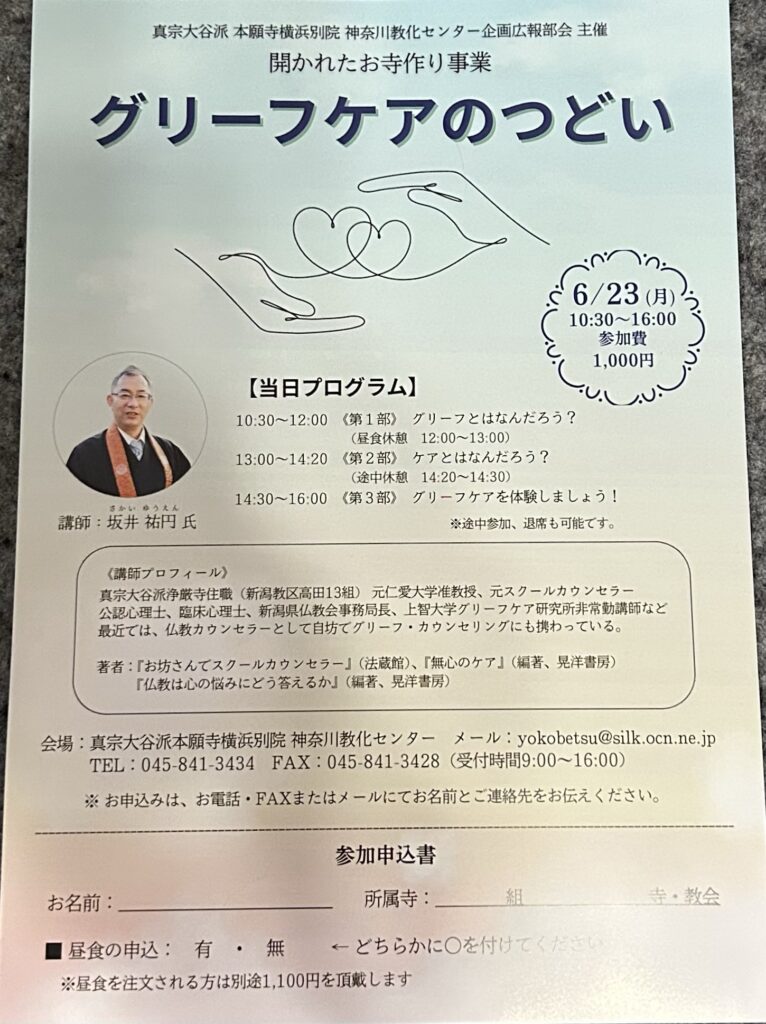 真宗大谷派 本願寺横浜別院 神奈川教化センター企画広報部会 主催
開かれたお寺作り事業
グリーフケアのつどい
6/23 (月)
10:30〜16:00
参加費
1,000円
【当日プログラム】
10:30〜12:00 《第１部》 グリーフとはなんだろう？
（昼食休憩 12:00〜13:00）
13:00〜14:20 《第２部》 ケアとはなんだろう？
（途中休憩 14:20〜14:30）
14:30〜16:00 《第３部》 グリーフケアを体験しましょう！
※途中参加、退席も可能です。
さかい ゆうえん
講師：坂井 祐円 氏
《講師プロフィール》
真宗大谷派浄厳寺住職（新潟教区高田13組） 元仁愛大学准教授、元スクールカウンセラー
公認心理士、臨床心理士、新潟県仏教会事務局長、上智大学グリーフケア研究所非常勤講師など
最近では、仏教カウンセラーとして自坊でグリーフ・カウンセリングにも携わっている。
著者：『お坊さんでスクールカウンセラー』（法蔵館）、『無心のケア』（編著、晃洋書房）
『仏教は心の悩みにどう答えるか』（編著、晃洋書房）
会場：真宗大谷派本願寺横浜別院 神奈川教化センター メール：yokobetsu@silk.ocn.ne.jp
TEL：045-841-3434 FAX：045-841-3428（受付時間9:00〜16:00）
※ お申込みは、お電話・FAXまたはメールにてお名前とご連絡先をお伝えください。
参加申込書
お名前：＿＿＿＿＿＿＿＿ 所属寺：＿＿＿組＿＿＿＿＿寺・教会
■ 昼食の申込： 有 ・ 無 ←どちらかに〇を付けてください
※昼食を注文される方は別途1,100円を頂戴します